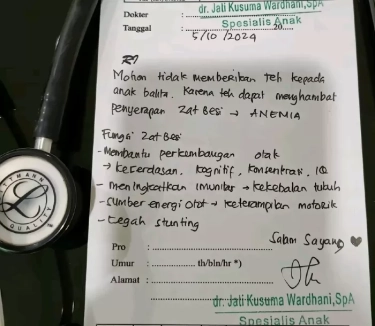 dr. Jati Kusuma Wardhani,SpA
Dokter :
Spesialis Anak
Tanggal : 5/10/2024 20
R/
Mohon tidak memberikan teh kepada
anak balita. Karena teh dapat menghambat
penyerapan zat Besi → ANEMIA
Fungsi Zat Besi
- Membantu perkembangan otak
→ kecerdasan, kognitif, konsentrasi, IQ
- meningkatkan imunitas → kekebalan tubuh
- Sumber energi otot → keterampilan motorik
- Cegah stunting
Salam Sayang ♥
Pro :
Umur : th/bln/hr *)
Alamat :
dr. Jati Kusuma Wardhani,SpA
Spesialis Anak
LITTMANN
QUALITY